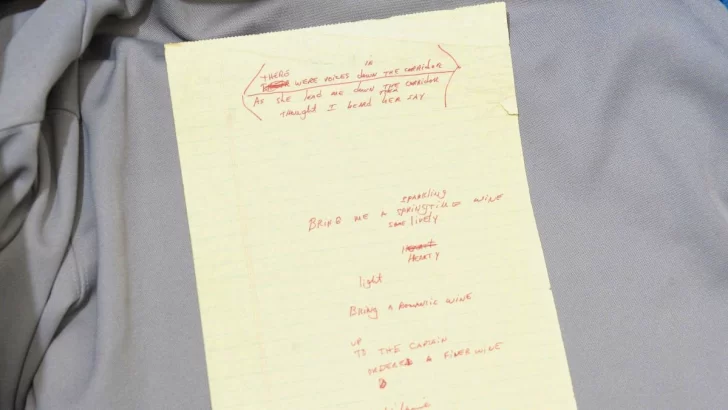 in
THERE
WERE VOICES DOWN THE CORRIDOR
AS SHE LEAD ME DOWN THE CORRIDOR
THOUGHT I HEARD HER SAY
SPARKLING
BRING ME A SPRINGTIME WINE
LIVELY
HEARTY
light
BRING A ROMANTIC WINE
UP
TO THE CAPTAIN
ORDERED A FINER WINE